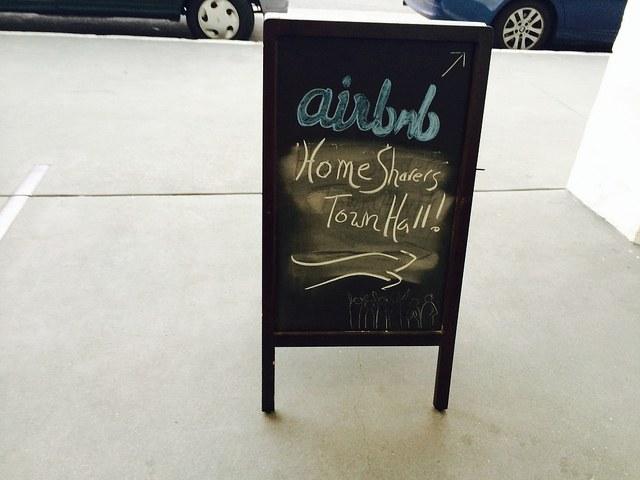 airbnb
Home Sharers
Town Hall!